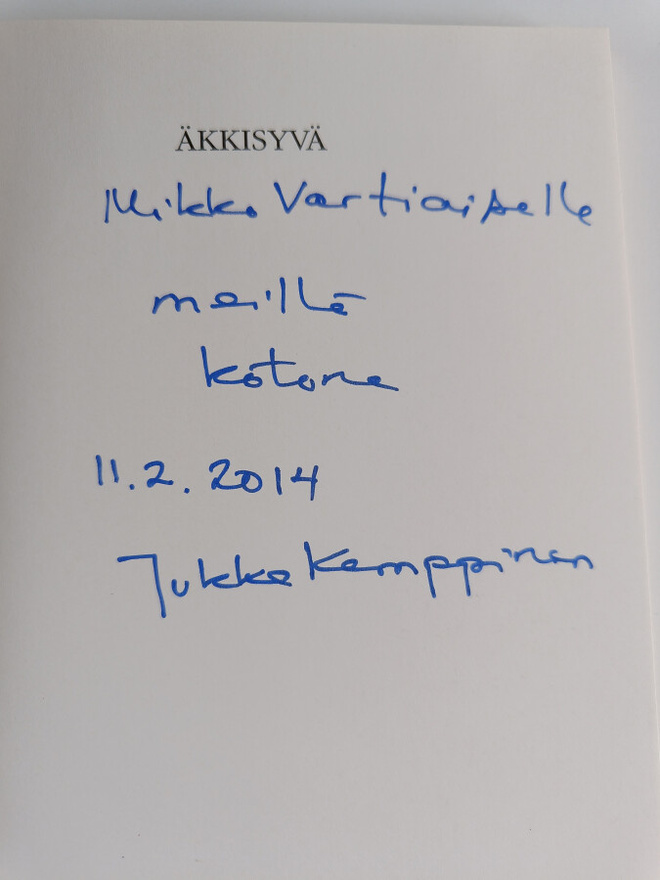 ÄKKISYVÄ
Mikko Vartiaiselle
meillä
kotona
11.2.2014
Jukka Kemppinen